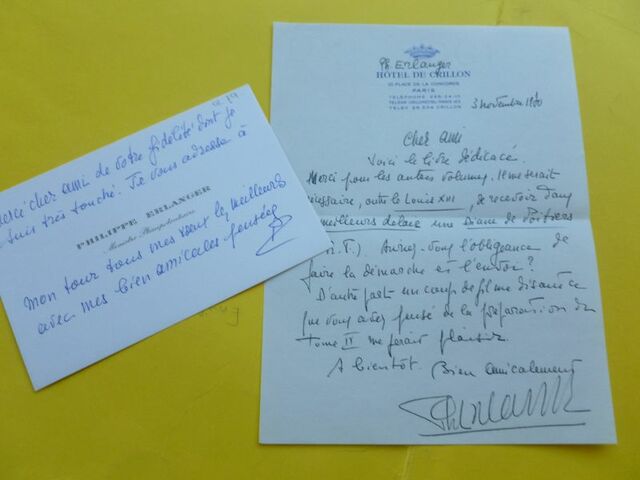 Merci cher ami de votre fidélité dont je
suis très touché. Je vous adresse à
PHILIPPE ERLANGER
Ministre Plénipotentiaire
mon tour tous mes vœux les meilleurs
avec mes bien amicales pensées
Ph. Erlanger
HÔTEL DE CRILLON
10 PLACE DE LA CONCORDE
PARIS
3 novembre 1980
Cher ami
Voici le livre dédicacé.
Merci pour les autres volumes. Il me serait
nécessaire, outre le Louis XIII, de recevoir dans
meilleurs délais une Diane de Poitiers
Auriez-vous l'obligeance de
faire la démarche et l'envoi?
D'autre part un coup de fil me disant ce
que vous avez pensé de la préparation du
Tome II me ferait plaisir.
A bientôt. Bien amicalement